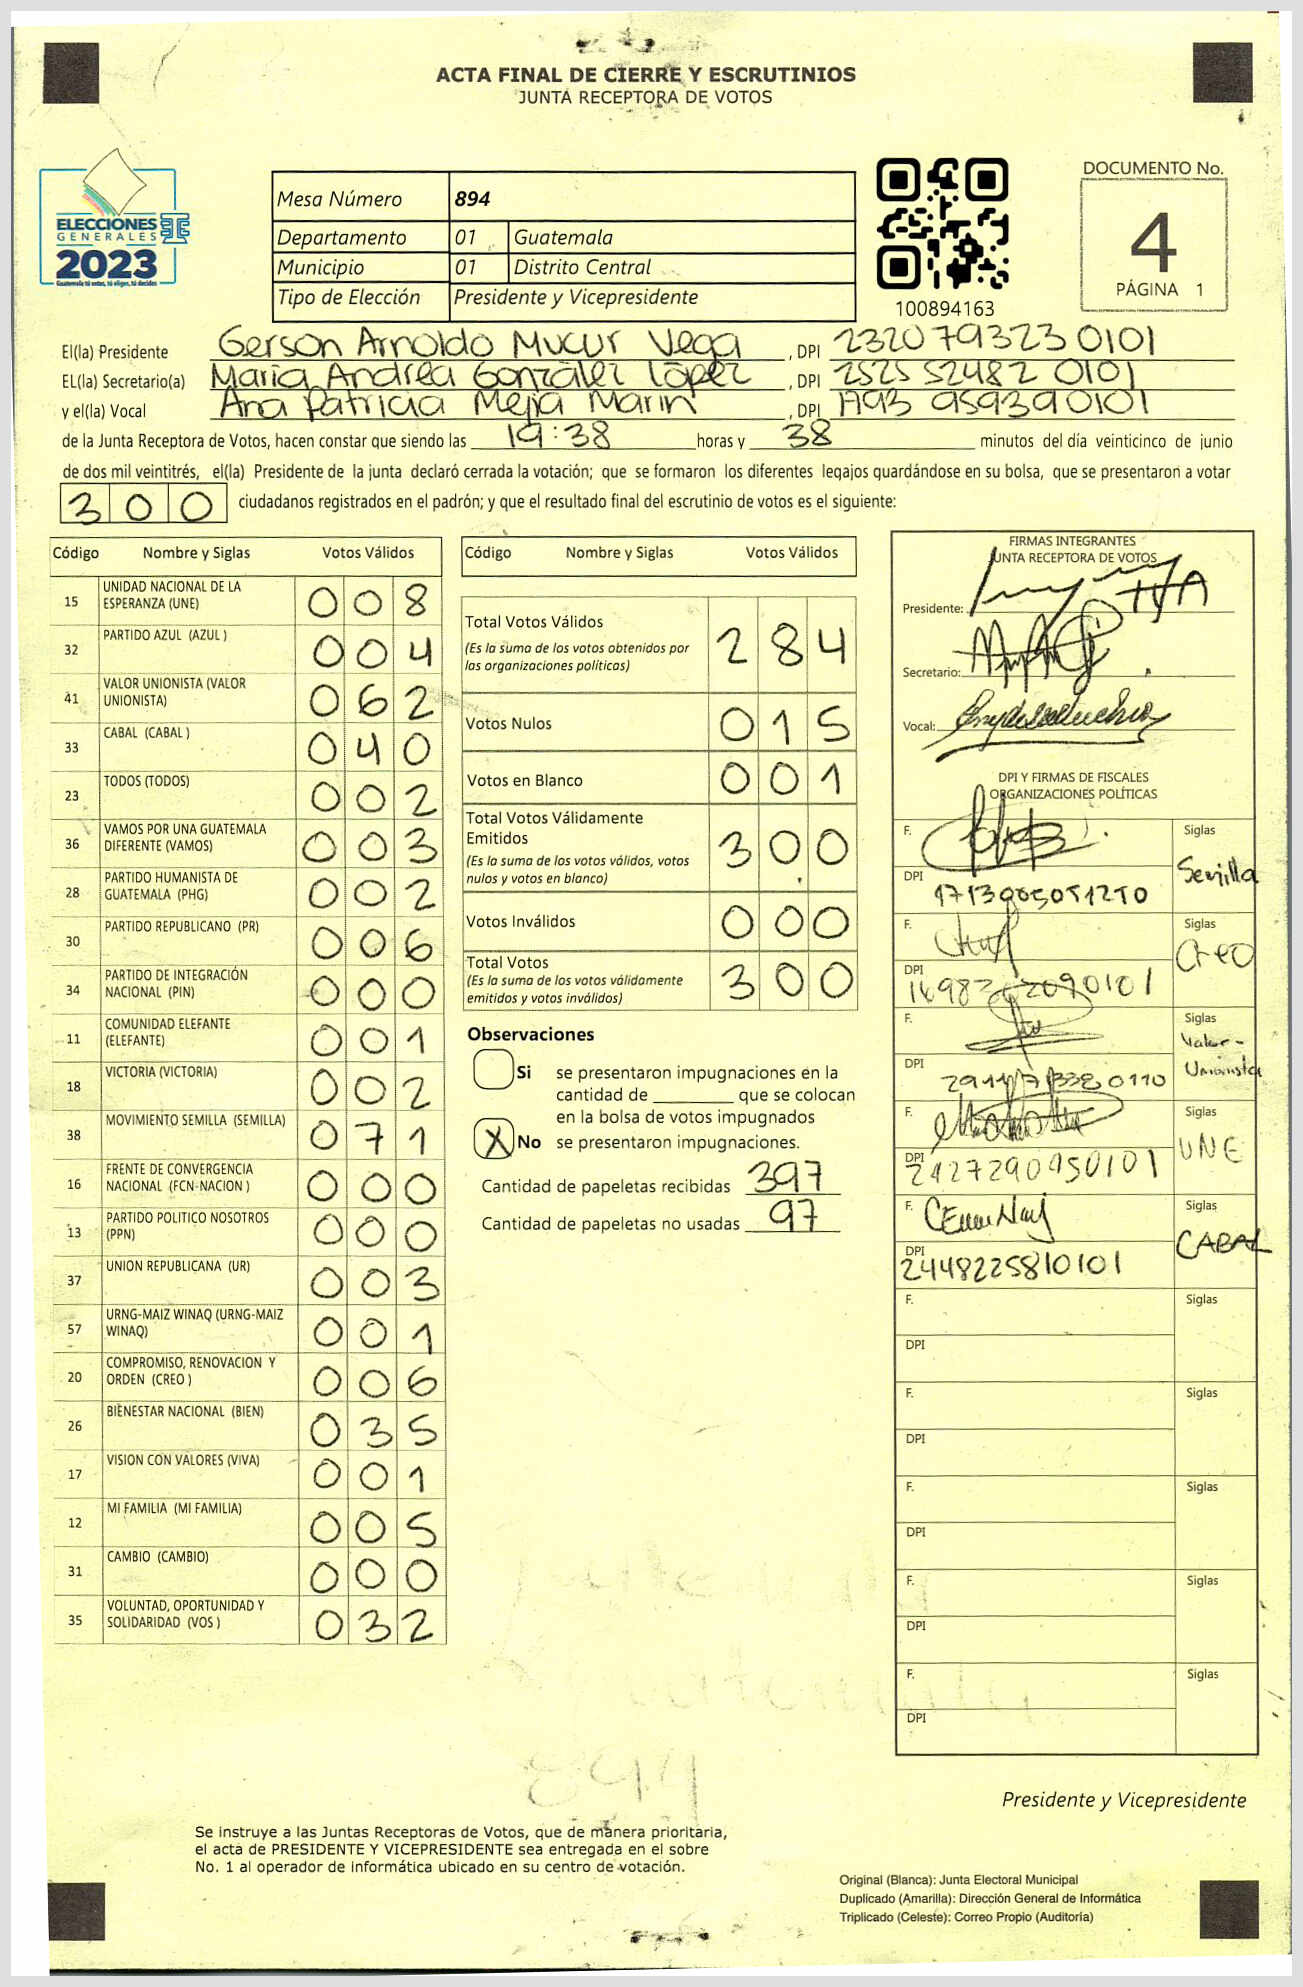 ACTA FINAL DE CIERRE Y ESCRUTINIOS
JUNTA RECEPTORA DE VOTOS
ELECCIONES
GENERALES
2023
Guatemala tú votas, tú eliges, tú decides
Mesa Número 894
Departamento 01 Guatemala
Municipio 01 Distrito Central
Tipo de Elección Presidente y Vicepresidente
100894163
DOCUMENTO No.
4
PÁGINA 1
El(la) Presidente Gerson Arnoldo Mucur Vega, DPI 2320 79323 0101
EL(la) Secretario(a) María Andrea González López, DPI 2525 52482 0101
y el(la) Vocal Ana Patricia Mejia Marin, DPI 1793 95939 0101
de la Junta Receptora de Votos, hacen constar que siendo las 19:38 horas y 38 minutos del día veinticinco de junio
de dos mil veintitrés, el(la) Presidente de la junta declaró cerrada la votación; que se formaron los diferentes legajos guardándose en su bolsa, que se presentaron a votar
300 ciudadanos registrados en el padrón; y que el resultado final del escrutinio de votos es el siguiente:
Código Nombre y Siglas Votos Válidos
15 UNIDAD NACIONAL DE LA ESPERANZA (UNE) 008
32 PARTIDO AZUL (AZUL ) 004
41 VALOR UNIONISTA (VALOR UNIONISTA) 062
33 CABAL (CABAL ) 040
23 TODOS (TODOS) 002
36 VAMOS POR UNA GUATEMALA DIFERENTE (VAMOS) 003
28 PARTIDO HUMANISTA DE GUATEMALA (PHG) 002
30 PARTIDO REPUBLICANO (PR) 006
34 PARTIDO DE INTEGRACIÓN NACIONAL (PIN) 000
11 COMUNIDAD ELEFANTE (ELEFANTE) 001
18 VICTORIA (VICTORIA) 002
38 MOVIMIENTO SEMILLA (SEMILLA) 071
16 FRENTE DE CONVERGENCIA NACIONAL (FCN-NACION ) 000
13 PARTIDO POLITICO NOSOTROS (PPN) 000
37 UNION REPUBLICANA (UR) 003
57 URNG-MAIZ WINAQ (URNG-MAIZ WINAQ) 001
20 COMPROMISO, RENOVACION Y ORDEN (CREO ) 006
26 BIENESTAR NACIONAL (BIEN) 035
17 VISION CON VALORES (VIVA) 001
12 MI FAMILIA (MI FAMILIA) 005
31 CAMBIO (CAMBIO) 000
35 VOLUNTAD, OPORTUNIDAD Y SOLIDARIDAD (VOS ) 032
Código Nombre y Siglas Votos Válidos
Total Votos Válidos 284
(Es la suma de los votos obtenidos por
las organizaciones políticas)
Votos Nulos 015
Votos en Blanco 001
Total Votos Válidamente
Emitidos 300
(Es la suma de los votos válidos, votos
nulos y votos en blanco)
Votos Inválidos 000
Total Votos 300
(Es la suma de los votos válidamente
emitidos y votos inválidos)
Observaciones
Si se presentaron impugnaciones en la
cantidad de ________ que se colocan
en la bolsa de votos impugnados
X No se presentaron impugnaciones.
Cantidad de papeletas recibidas 397
Cantidad de papeletas no usadas 97
FIRMAS INTEGRANTES
JUNTA RECEPTORA DE VOTOS
Presidente:
Secretario:
Vocal:
DPI Y FIRMAS DE FISCALES
ORGANIZACIONES POLÍTICAS
F. Siglas
Semilla
DPI
F. Siglas
Creo
DPI
F. Siglas
Valor-
Unionista
DPI
F. Siglas
UNE
DPI 2427290950101
F. Siglas
CABAL
DPI 2448225810101
F. Siglas
DPI
F. Siglas
DPI
F. Siglas
DPI
F. Siglas
DPI
F. Siglas
DPI
894
Presidente y Vicepresidente
Se instruye a las Juntas Receptoras de Votos, que de manera prioritaria,
el acta de PRESIDENTE Y VICEPRESIDENTE sea entregada en el sobre
No. 1 al operador de informática ubicado en su centro de votación.
Original (Blanca): Junta Electoral Municipal
Duplicado (Amarilla): Dirección General de Informática
Triplicado (Celeste): Correo Propio (Auditoría)